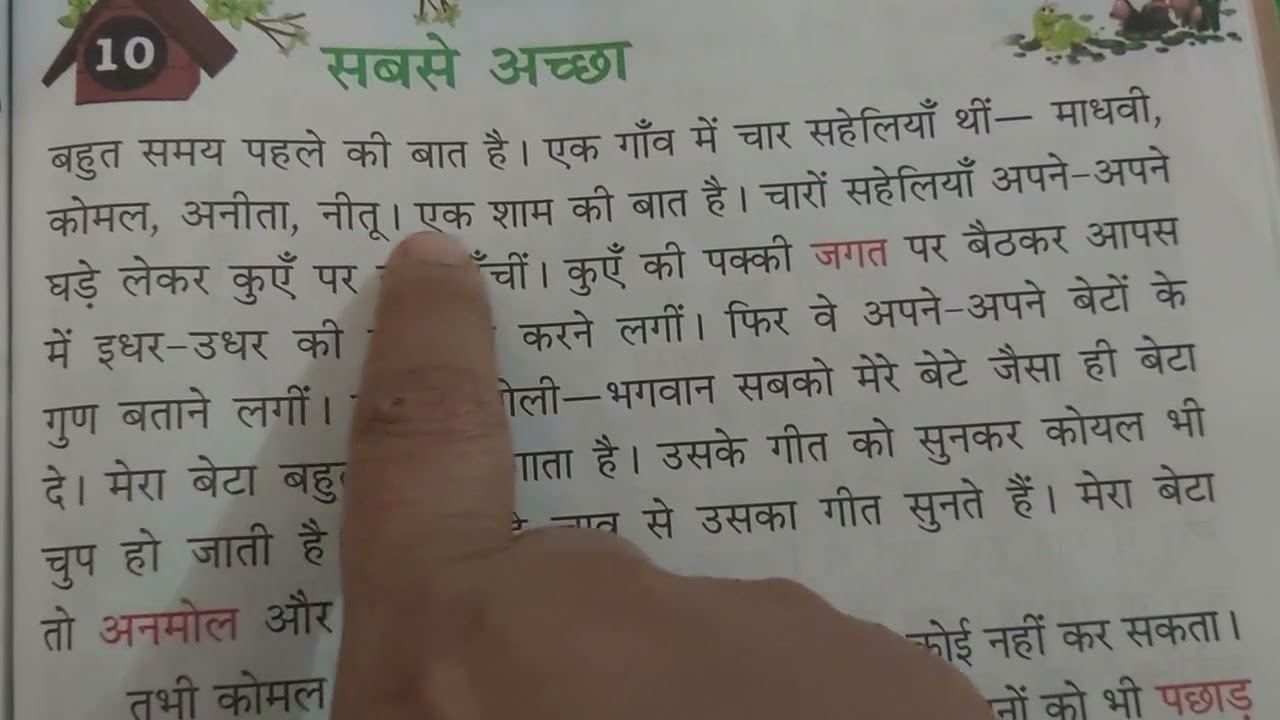 10
सबसे अच्छा
बहुत समय पहले की बात है। एक गाँव में चार सहेलियाँ थीं— माधवी,
कोमल, अनीता, नीतू। एक शाम की बात है। चारों सहेलियाँ अपने-अपने
घड़े लेकर कुएँ पर कुएँ की पक्की जगत पर बैठकर आपस
में इधर-उधर की करने लगीं। फिर वे अपने-अपने बेटों के
गुण बताने लगीं। भगवान सबको मेरे बेटे जैसा ही बेटा
दे। मेरा बेटा गाता है। उसके गीत को सुनकर कोयल भी
चुप हो जाती है से उसका गीत सुनते हैं। मेरा बेटा
तो अनमोल और कोई नहीं कर सकता।
तभी कोमल को भी पछाड़